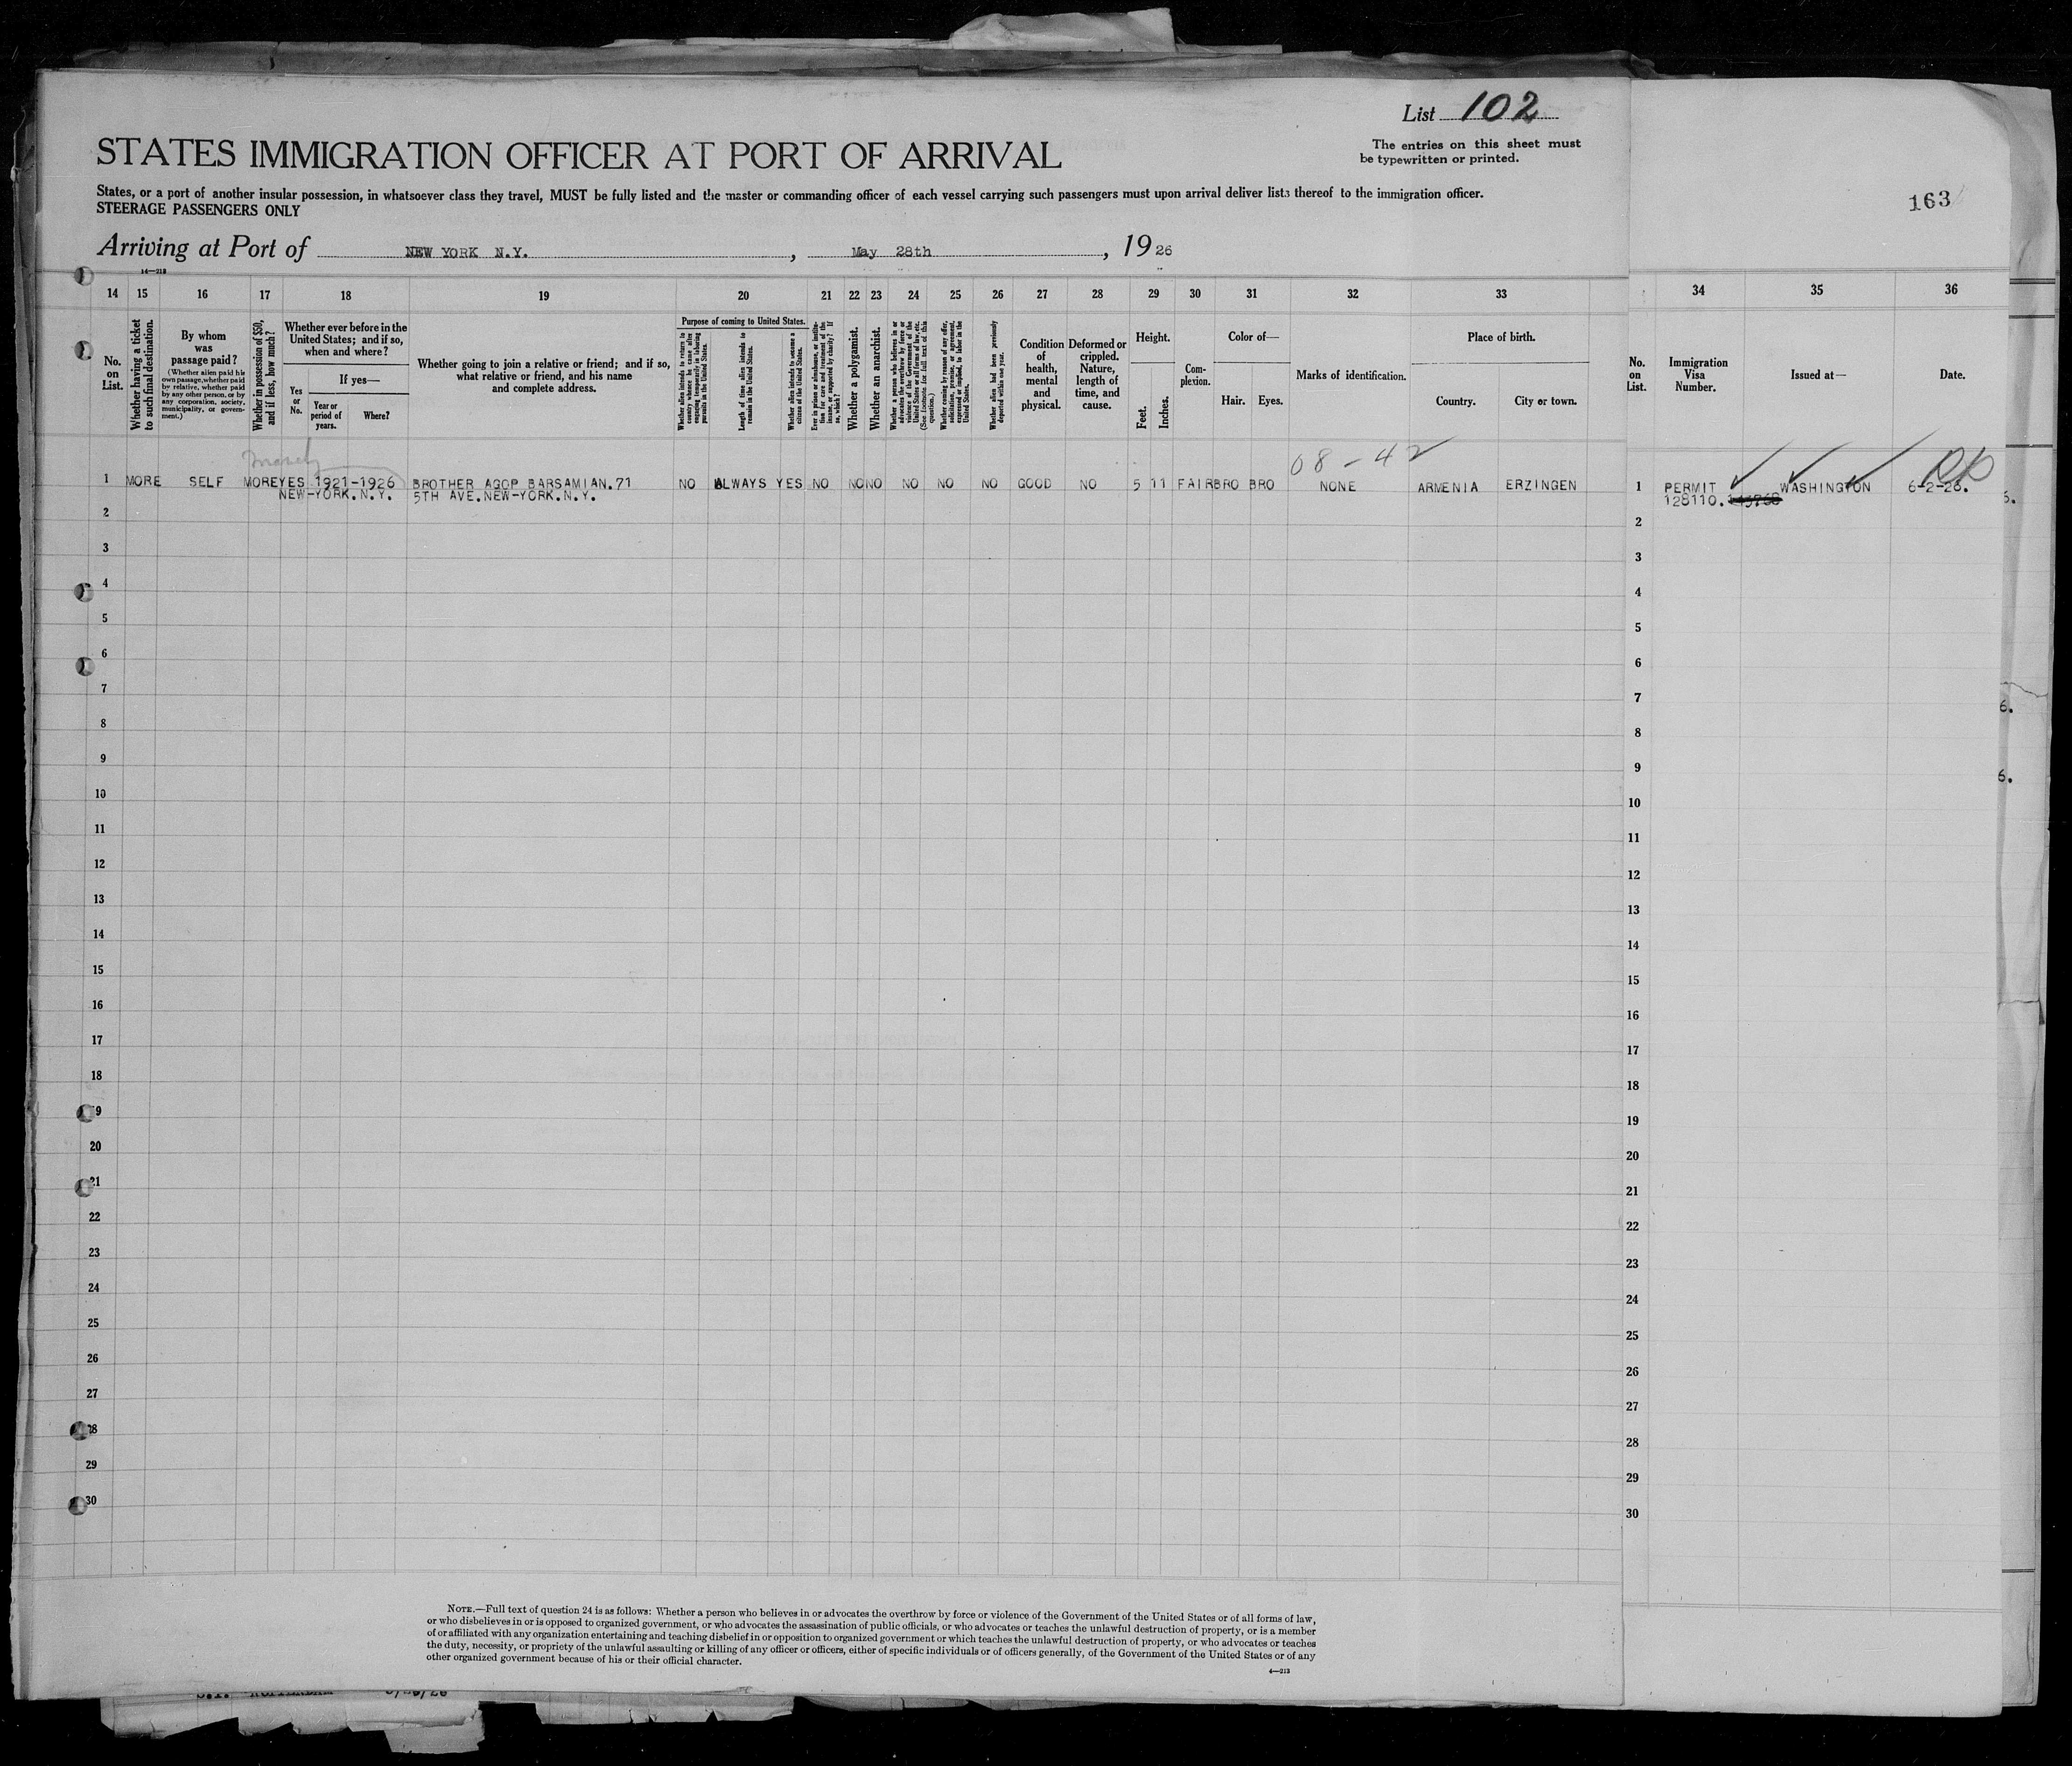 List 102
The entries on this sheet must
be typewritten or printed.
STATES IMMIGRATION OFFICER AT PORT OF ARRIVAL
163
States, or a port of another insular possession, in whatsoever class they travel, MUST be fully listed and the master or commanding officer of each vessel carrying such passengers must upon arrival deliver lists thereof to the immigration officer.
STEERAGE PASSENGERS ONLY
Arriving at Port of NEW YORK N.Y. , May 28th , 19 26
14—213
14 15 16 17 18 19 20 21 22 23 24 25 26 27 28 29 30 31 32 33 34 35 36
No. on List.
Whether having a ticket to such final destination.
By whom was passage paid?
(Whether alien paid his own passage, whether paid by relative, whether paid by any other person, or by any corporation, society, municipality, or government.)
Whether in possession of $50, and if less, how much?
Whether ever before in the United States; and if so, when and where?
Yes or No.
If yes—
Year or period of years.
Where?
Whether going to join a relative or friend; and if so, what relative or friend, and his name and complete address.
Purpose of coming to United States.
Whether alien intends to return to country whence he came after engaging temporarily in laboring pursuits in the United States.
Length of time alien intends to remain in the United States.
Whether alien intends to become a citizen of the United States.
Ever in prison or almshouse, or institution for care and treatment of the insane, or supported by charity? If so, which?
Whether a polygamist.
Whether an anarchist.
Whether a person who believes in or advocates the overthrow by force or violence of the Government of the United States or all forms of law, etc. (See footnote for full text of this question.)
Whether coming by reason of any offer, solicitation, promise, or agreement, expressed or implied, to labor in the United States.
Whether alien had been previously deported within one year.
Condition of health, mental and physical.
Deformed or crippled. Nature, length of time, and cause.
Height.
Feet. Inches.
Complexion.
Color of—
Hair. Eyes.
Marks of identification.
Place of birth.
Country. City or town.
No. on List.
Immigration Visa Number.
Issued at—
Date.
08-42
1 MORE SELF MORE YES 1921-1926 BROTHER AGOP BARSAMIAN.71 NO ALWAYS YES NO NO NO NO NO NO GOOD NO 5 11 FAIR BRO BRO NONE ARMENIA ERZINGEN 1 PERMIT WASHINGTON 6-2-26.
NEW-YORK.N.Y. 5TH AVE.NEW-YORK.N.Y. 128110.
2 2
3 3
4 4
5 5
6 6
7 7
8 8
9 9
10 10
11 11
12 12
13 13
14 14
15 15
16 16
17 17
18 18
19 19
20 20
21 21
22 22
23 23
24 24
25 25
26 26
27 27
28 28
29 29
30 30
NOTE.—Full text of question 24 is as follows: Whether a person who believes in or advocates the overthrow by force or violence of the Government of the United States or of all forms of law,
or who disbelieves in or is opposed to organized government, or who advocates the assassination of public officials, or who advocates or teaches the unlawful destruction of property, or is a member
of or affiliated with any organization entertaining and teaching disbelief in or opposition to organized government or which teaches the unlawful destruction of property, or who advocates or teaches
the duty, necessity, or propriety of the unlawful assaulting or killing of any officer or officers, either of specific individuals or of officers generally, of the Government of the United States or of any
other organized government because of his or their official character.
4—213